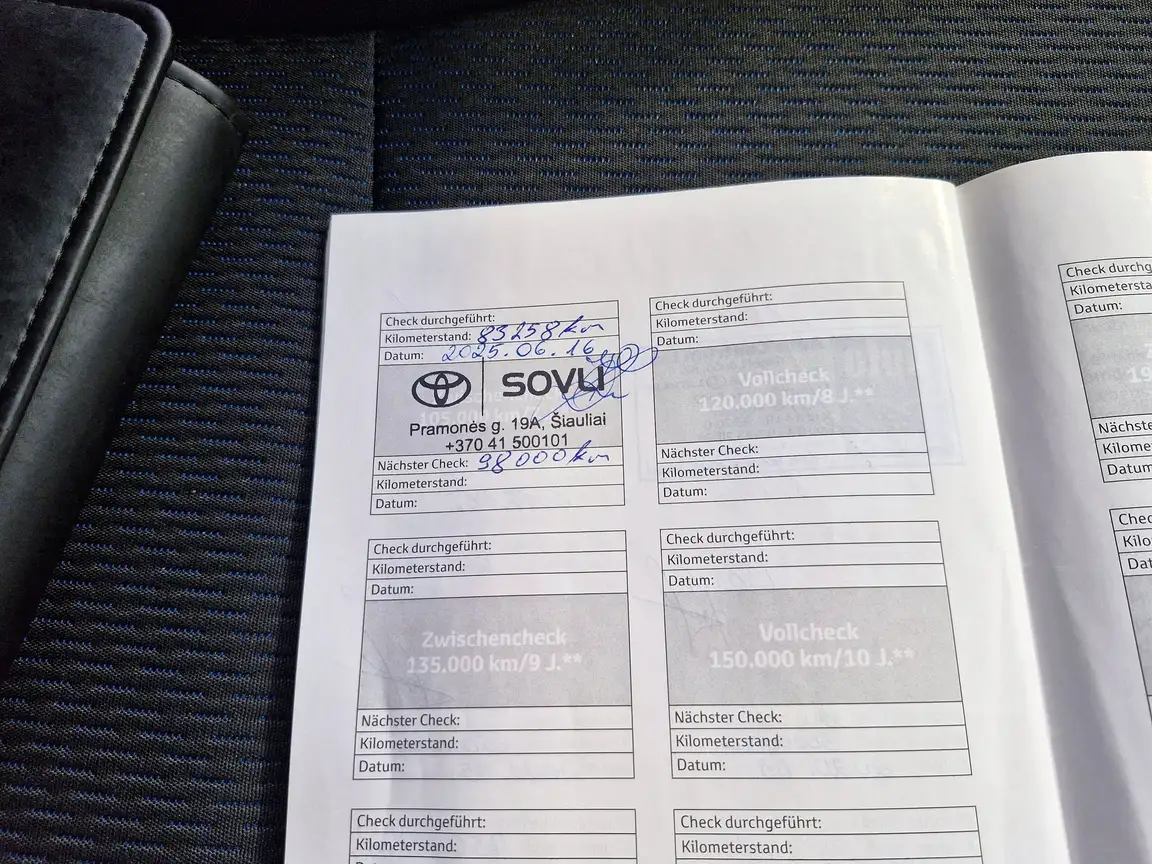 Check durchgeführt:
Kilometerstand: 83258 km
Datum: 2025.06.16
SOVLI
105.000 km/
Pramonės g. 19A, Šiauliai
+370 41 500101
Nächster Check: 98000 km
Kilometerstand:
Datum:
Check durchgeführt:
Kilometerstand:
Datum:
Vollcheck
120.000 km/8 J.**
Nächster Check:
Kilometerstand:
Datum:
Check durchg
Kilometersta
Datum:
19
Nächste
Kilome
Datum
Check durchgeführt:
Kilometerstand:
Datum:
Zwischencheck
135.000 km/9 J.**
Nächster Check:
Kilometerstand:
Datum:
Check durchgeführt:
Kilometerstand:
Datum:
Vollcheck
150.000 km/10 J.**
Nächster Check:
Kilometerstand:
Datum:
Chec
Kilo
Dat
Check durchgeführt:
Kilometerstand:
Check durchgeführt:
Kilometerstand: